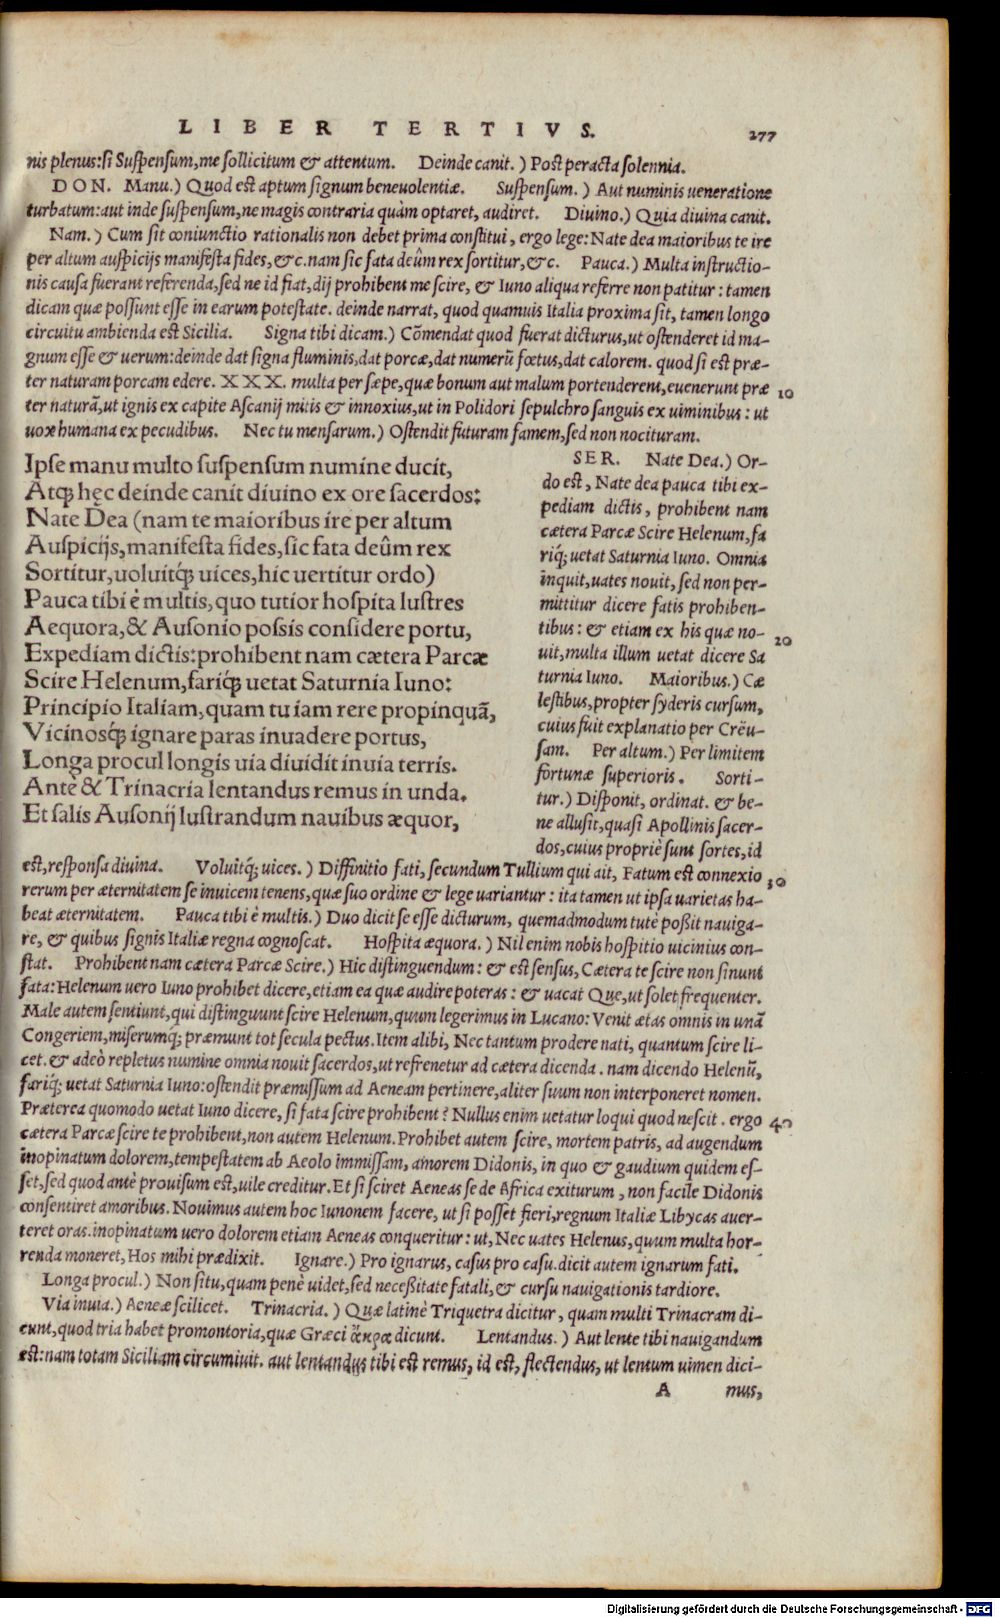 LIBER TERTIVS. 277
nis plenus: si Suspensum, me sollicitum & attentum. Deinde canit.) Post peracta solennia.
DON. Manu.) Quod est aptum signum beneuolentiæ. Suspensum.) Aut numinis ueneratione
turbatum: aut inde suspensum, ne magis contraria quàm optaret, audiret. Diuino.) Quia diuina canit.
Nam.) Cum sit coniunctio rationalis non debet prima constitui, ergo lege: Nate dea maioribus te ire
per altum auspicijs manifesta fides, &c. nam sic fata deûm rex sortitur, &c. Pauca.) Multa instructio-
nis causa fuerant referenda, sed ne id fiat, dij prohibent me scire, & Iuno aliqua referre non patitur: tamen
dicam quæ possunt esse in earum potestate. deinde narrat, quod quamuis Italia proxima sit, tamen longo
circuitu ambienda est Sicilia. Signa tibi dicam.) Cõmendat quod fuerat dicturus, ut ostenderet id ma-
gnum esse & uerum: deinde dat signa fluminis, dat porcæ, dat numerũ fœtus, dat calorem. quod si est præ-
ter naturam porcam edere. XXX. multa per sæpe, quæ bonum aut malum portenderent, euenerunt præ 10
ter naturã, ut ignis ex capite Ascanij mitis & innoxius, ut in Polidori sepulchro sanguis ex uiminibus: ut
uox humana ex pecudibus. Nec tu mensarum.) Ostendit futuram famem, sed non nocituram.
Ipse manu multo suspensum numine ducit,
Atq̃ hęc deinde canit diuino ex ore sacerdos:
Nate Dea (nam te maioribus ire per altum
Auspicijs, manifesta fides, sic fata deûm rex
Sortitur, uoluitq́; uices, hic uertitur ordo)
Pauca tibi è multis, quo tutior hospita lustres
Aequora, & Ausonio possis considere portu,
Expediam dictis: prohibent nam cætera Parcæ
Scire Helenum, fariq́; uetat Saturnia Iuno:
Principio Italiam, quam tu iam rere propinquã,
Vicinosq́; ignare paras inuadere portus,
Longa procul longis uia diuidit inuia terris.
Antè & Trinacria lentandus remus in unda.
Et salis Ausonij lustrandum nauibus æquor,
SER. Nate Dea.) Or-
do est, Nate dea pauca tibi ex-
pediam dictis, prohibent nam
cætera Parcæ Scire Helenum, fa
riq́; uetat Saturnia Iuno. Omnia
inquit, uates nouit, sed non per-
mittitur dicere fatis prohiben-
tibus: & etiam ex his quæ no- 20
uit, multa illum uetat dicere Sa
turnia Iuno. Maioribus.) Cæ
lestibus, propter syderis cursum,
cuius fuit explanatio per Crëu-
sam. Per altum.) Per limitem
fortunæ superioris. Sorti-
tur.) Disponit, ordinat. & be-
ne allusit, quasi Apollinis sacer-
dos, cuius propriè sunt sortes, id
est, responsa diuina. Voluitq́; uices.) Diffinitio fati, secundum Tullium qui ait, Fatum est connexio 30
rerum per æternitatem se inuicem tenens, quæ suo ordine & lege uariantur: ita tamen ut ipsa uarietas ha-
beat æternitatem. Pauca tibi è multis.) Duo dicit se esse dicturum, quemadmodum tutè poßit nauiga-
re, & quibus signis Italiæ regna cognoscat. Hospita æquora.) Nil enim nobis hospitio uicinius con-
stat. Prohibent nam cætera Parcæ Scire.) Hic distinguendum: & est sensus, Cætera te scire non sinunt
fata: Helenum uero Iuno prohibet dicere, etiam ea quæ audire poteras: & uacat Que, ut solet frequenter.
Male autem sentiunt, qui distinguunt scire Helenum, quum legerimus in Lucano: Venit ætas omnis in unã
Congeriem, miserumq́; præmunt tot secula pectus. Item alibi, Nec tantum prodere uati, quantum scire li-
cet. & adeò repletus numine omnia nouit sacerdos, ut refrenetur ad cætera dicenda. nam dicendo Helenũ,
fariq́; uetat Saturnia Iuno: ostendit præmissum ad Aeneam pertinere, aliter suum non interponeret nomen.
Præterea quomodo uetat Iuno dicere, si fata scire prohibent? Nullus enim uetatur loqui quod nescit. ergo 40
cætera Parcæ scire te prohibent, non autem Helenum. Prohibet autem scire, mortem patris, ad augendum
inopinatum dolorem, tempestatem ab Aeolo immissam, amorem Didonis, in quo & gaudium quidem es-
set, sed quod antè prouisum est, uile creditur. Et si sciret Aeneas se de Africa exiturum, non facile Didonis
consentiret amoribus. Nouimus autem hoc Iunonem facere, ut si posset fieri, regnum Italiæ Libycas auer-
teret oras. inopinatum uero dolorem etiam Aeneas conqueritur: ut, Nec uates Helenus, quum multa hor-
renda moneret, Hos mihi prædixit. Ignare.) Pro ignarus, casus pro casu. dicit autem ignarum fati.
Longa procul.) Non situ, quam penè uidet, sed neceßitate fatali, & cursu nauigationis tardiore.
Via inuia.) Aeneæ scilicet. Trinacria.) Quæ latinè Triquetra dicitur, quam multi Trinacram di-
cunt, quod tria habet promontoria, quæ Græci ἄκρα dicunt. Lentandus.) Aut lente tibi nauigandum
est: nam totam Siciliam circumiuit. aut lentandus tibi est remus, id est, flectendus, ut lentum uimen dici-
A mus,
Digitalisierung gefördert durch die Deutsche Forschungsgemeinschaft - DFG